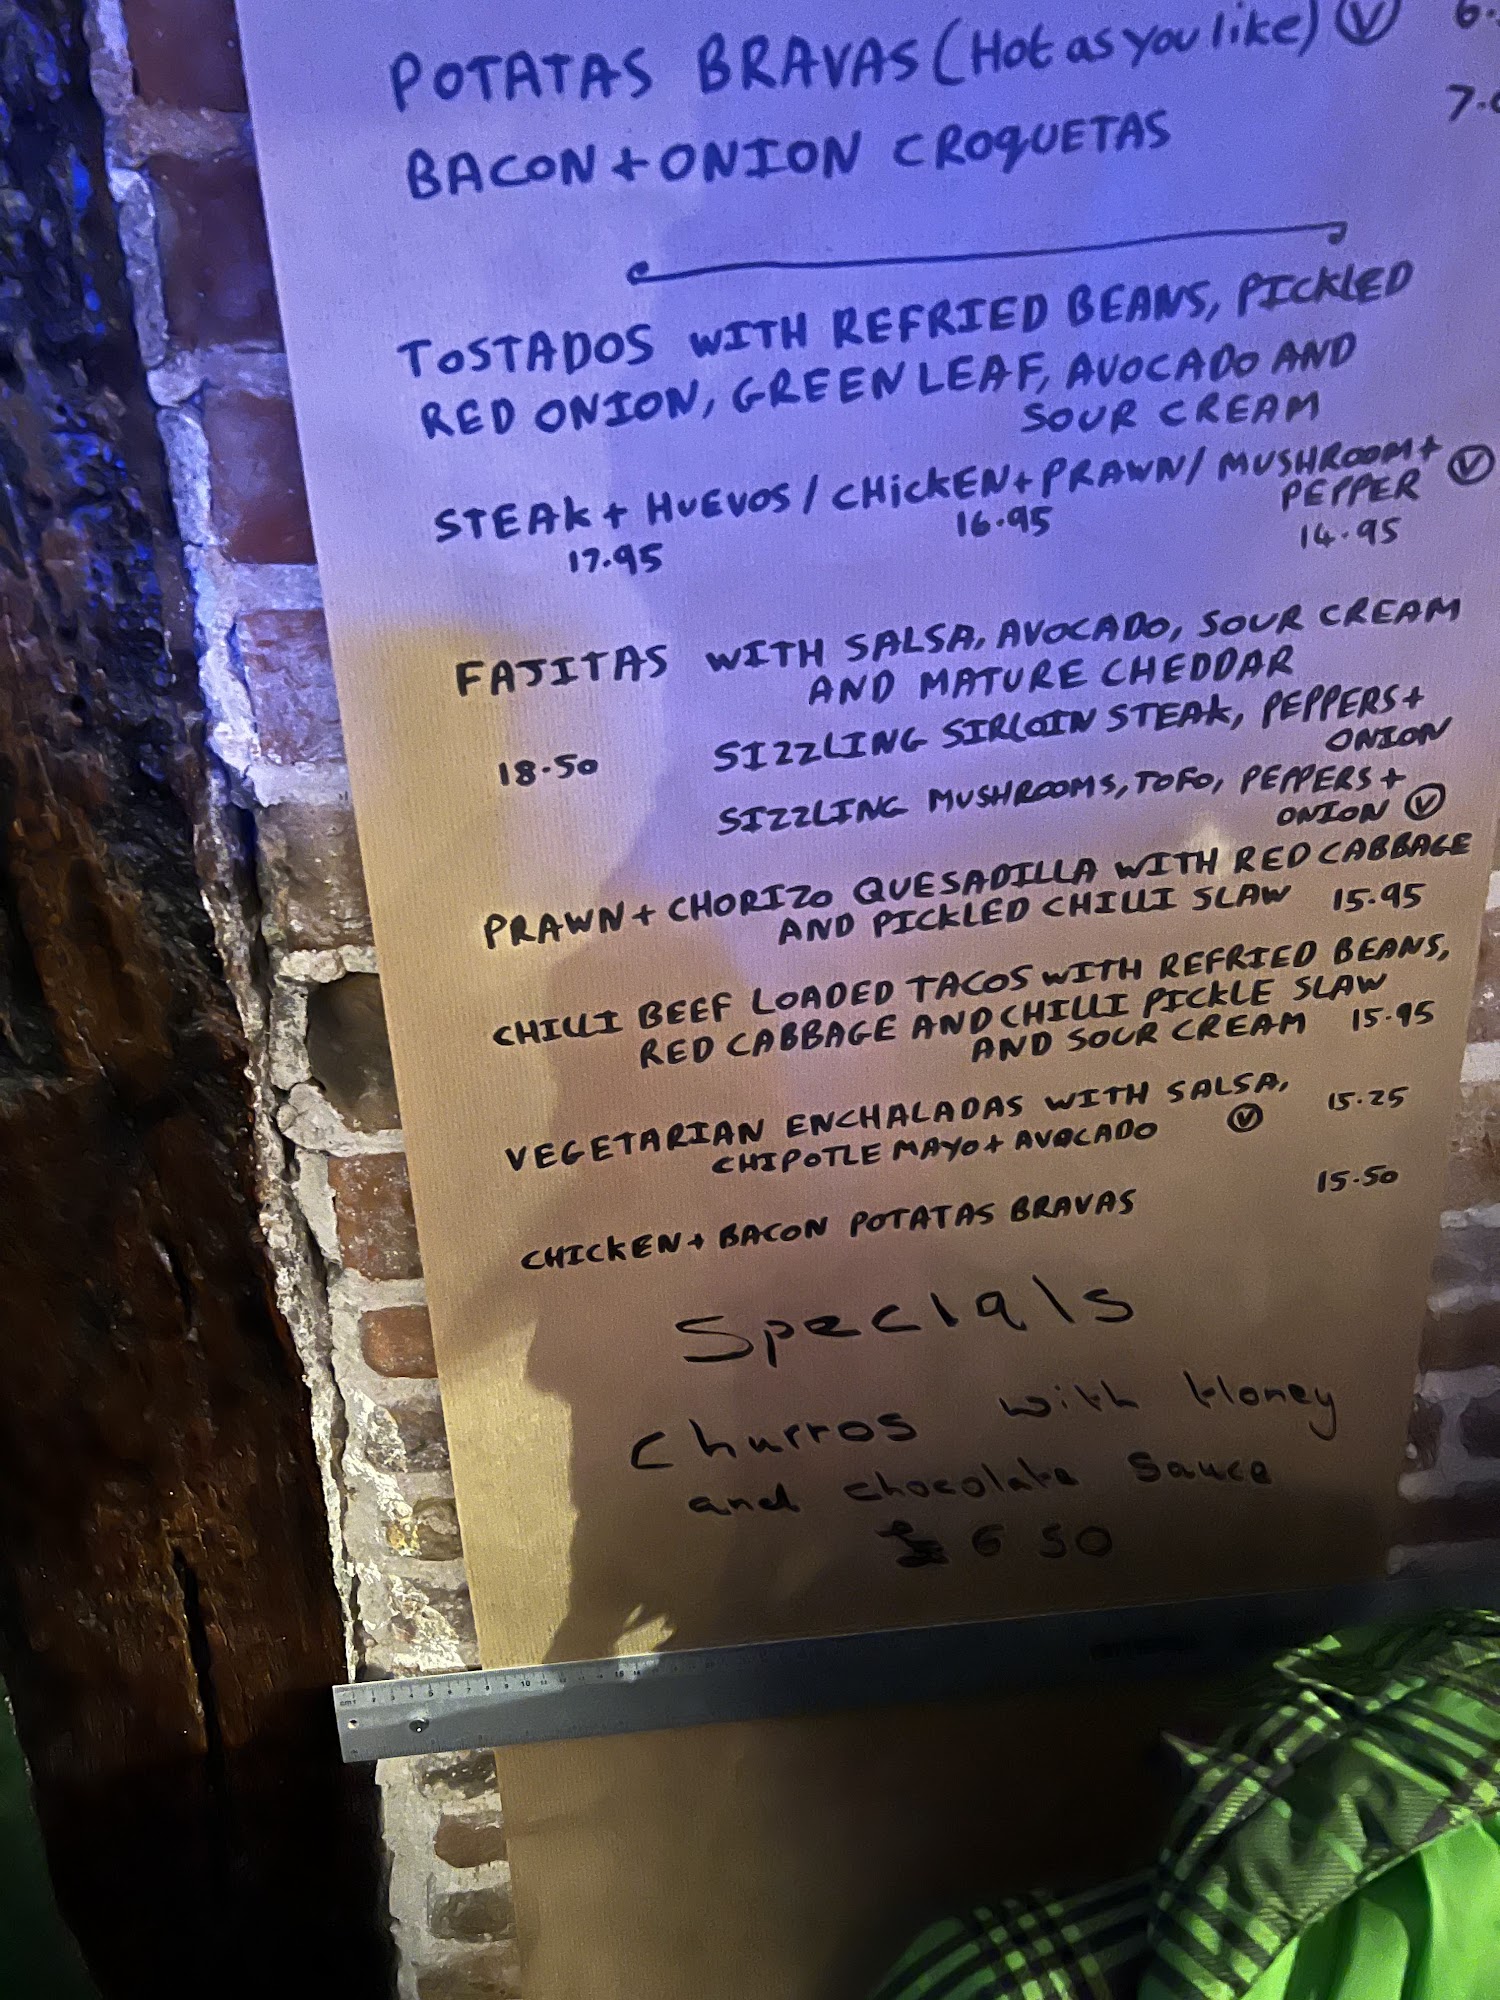 POTATAS BRAVAS (Hot as you like) Ⓥ 6.
BACON + ONION CROQUETAS 7.0
TOSTADOS WITH REFRIED BEANS, PICKLED
RED ONION, GREEN LEAF, AVOCADO AND
SOUR CREAM
STEAK + HUEVOS / CHICKEN + PRAWN / MUSHROOM +
PEPPER Ⓥ
17.95 16.95 14.95
FAJITAS WITH SALSA, AVOCADO, SOUR CREAM
AND MATURE CHEDDAR
18.50 SIZZLING SIRLOIN STEAK, PEPPERS +
ONION
SIZZLING MUSHROOMS, TOFO, PEPPERS +
ONION Ⓥ
PRAWN + CHORIZO QUESADILLA WITH RED CABBAGE
AND PICKLED CHILLI SLAW 15.95
CHILLI BEEF LOADED TACOS WITH REFRIED BEANS,
RED CABBAGE AND CHILLI PICKLE SLAW
AND SOUR CREAM 15.95
VEGETARIAN ENCHALADAS WITH SALSA, 15.25
CHIPOTLE MAYO + AVOCADO Ⓥ
CHICKEN + BACON POTATAS BRAVAS 15.50
Specials
Churros with Honey
and chocolate sauce
£ 6 50